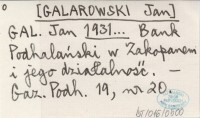 [GALAROWSKI Jan]
GAL. Jan 1931... Bank
Podhalański w Zakopanem
i jego działalność. —
Gaz. Podh. 19, nr 20.